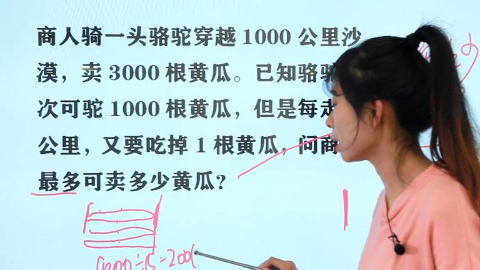 商人骑一头骆驼穿越1000公里沙
漠，卖3000根黄瓜。已知骆驼
次可驼1000根黄瓜，但是每走
公里，又要吃掉1根黄瓜，问商
最多可卖多少黄瓜？
1000÷5=200(